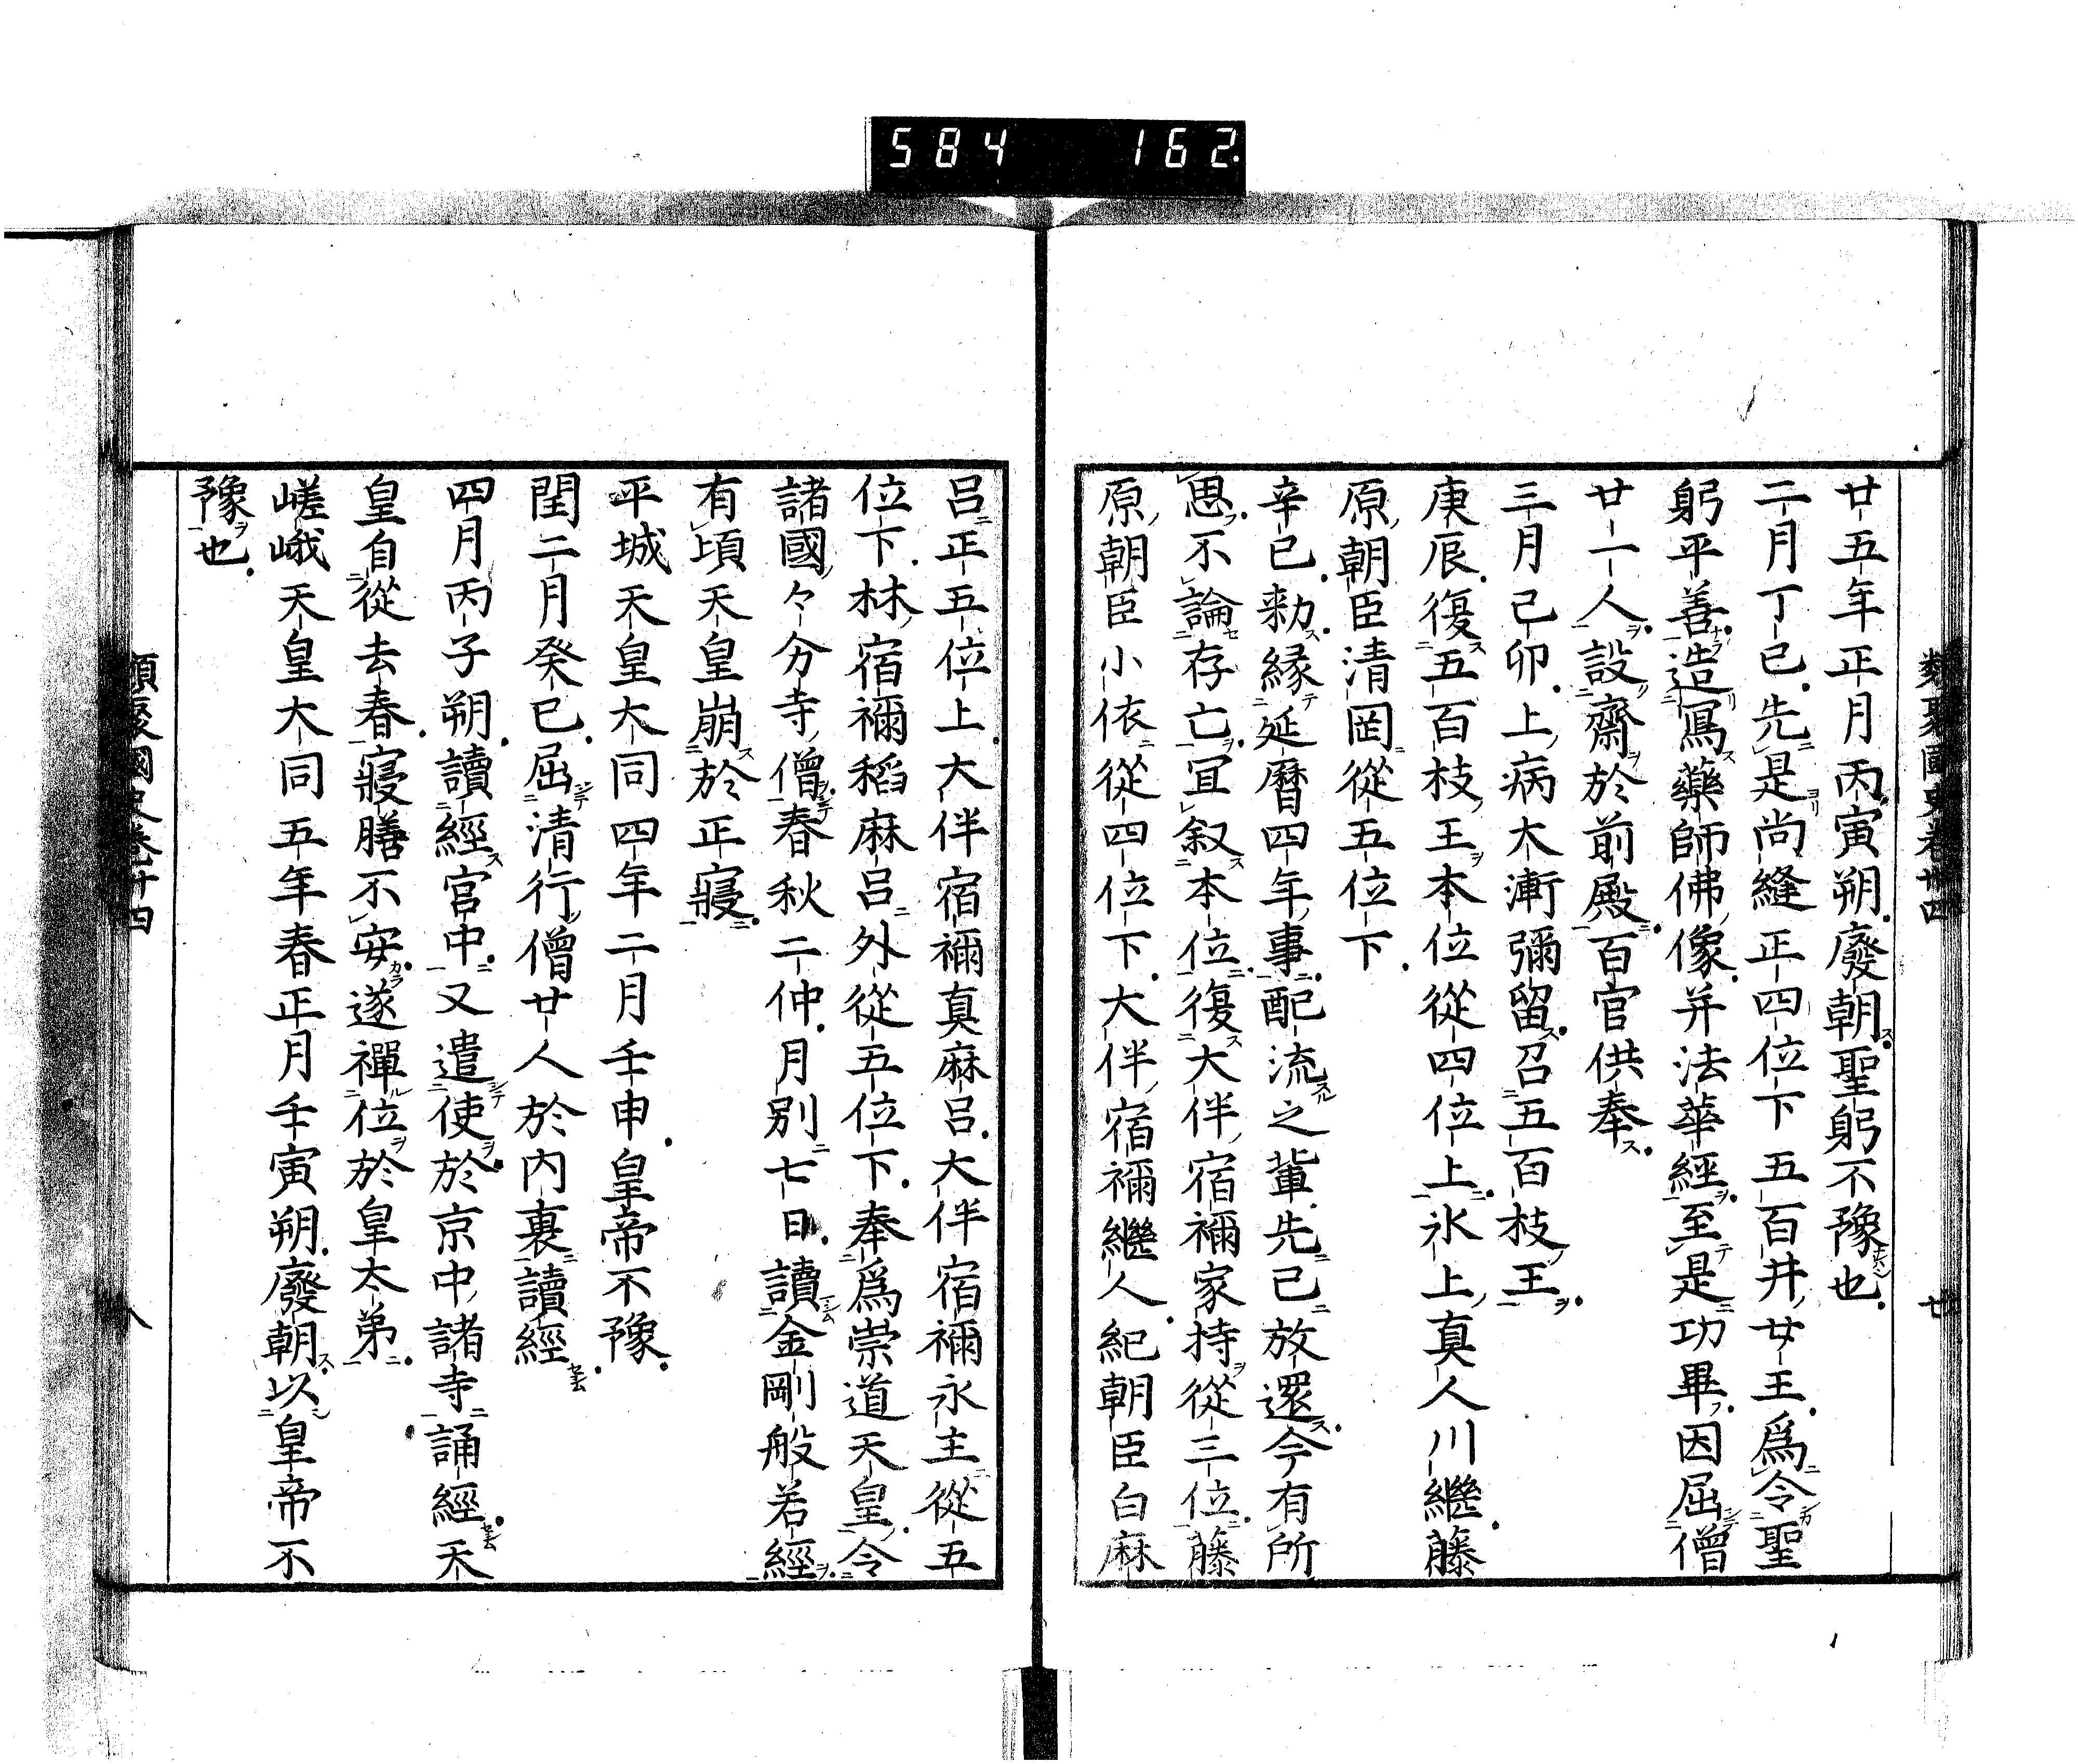 584 162
廿五年正月丙寅朔廢朝聖躬不豫也
二月丁已先是尚縫正四位下五百井女王爲令聖
躬平善造冩藥師佛像并法華經至是功畢因屈僧
廿一人設齋於前殿百官供奉
三月己卯上病大漸彌留召五百枝王
庚辰復五百枝王本位從四位上氷上真人川繼藤
原朝臣清罡從五位下
辛已勅縁延曆四年事配流之輩先己放還今有所
思不論存亡冝叙本位復大伴宿禰家持從三位藤
原朝臣小依從四位下大伴宿禰繼人紀朝臣白麻
呂正五位上大伴宿禰真麻呂大伴宿禰永主從五
位下林宿禰稻麻呂外從五位下奉爲崇道天皇令
諸國々分寺僧春秋二仲月別七日讀金剛般若經
有頃天皇崩於正寢
平城天皇大同四年二月壬申皇帝不豫
閏二月癸已屈清行僧廿人於内裏讀經
四月丙子朔讀經宮中又遣使於京中諸寺誦經天
皇自從去春寢膳不安遂禪位於皇太弟
嵯峨天皇大同五年春正月壬寅朔廢朝以皇帝不
豫也